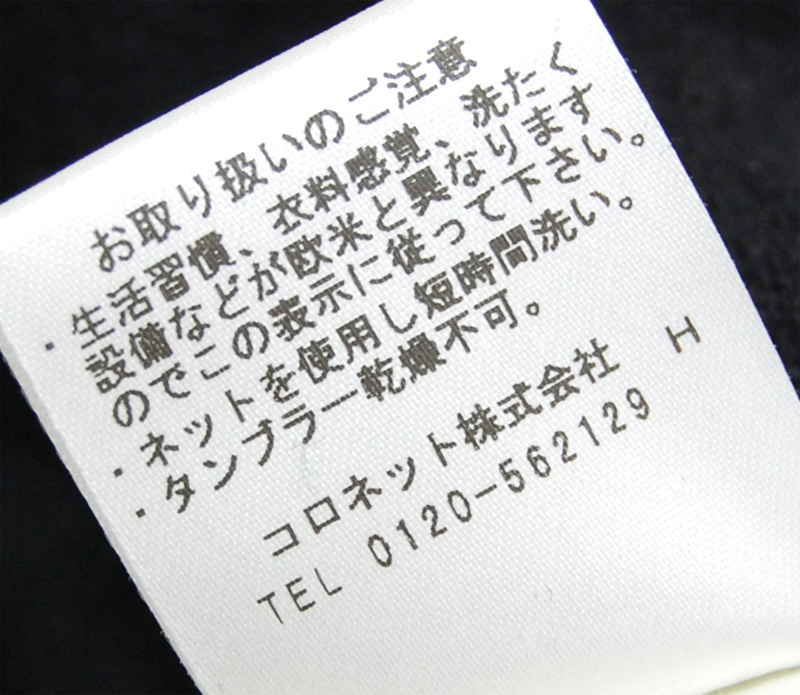 お取り扱いのご注意
・生活習慣、衣料感覚、洗たく
設備などが欧米と異なります
のでこの表示に従って下さい。
・ネットを使用し短時間洗い。
・タンブラー乾燥不可。
コロネット株式会社 H
TEL 0120-562129